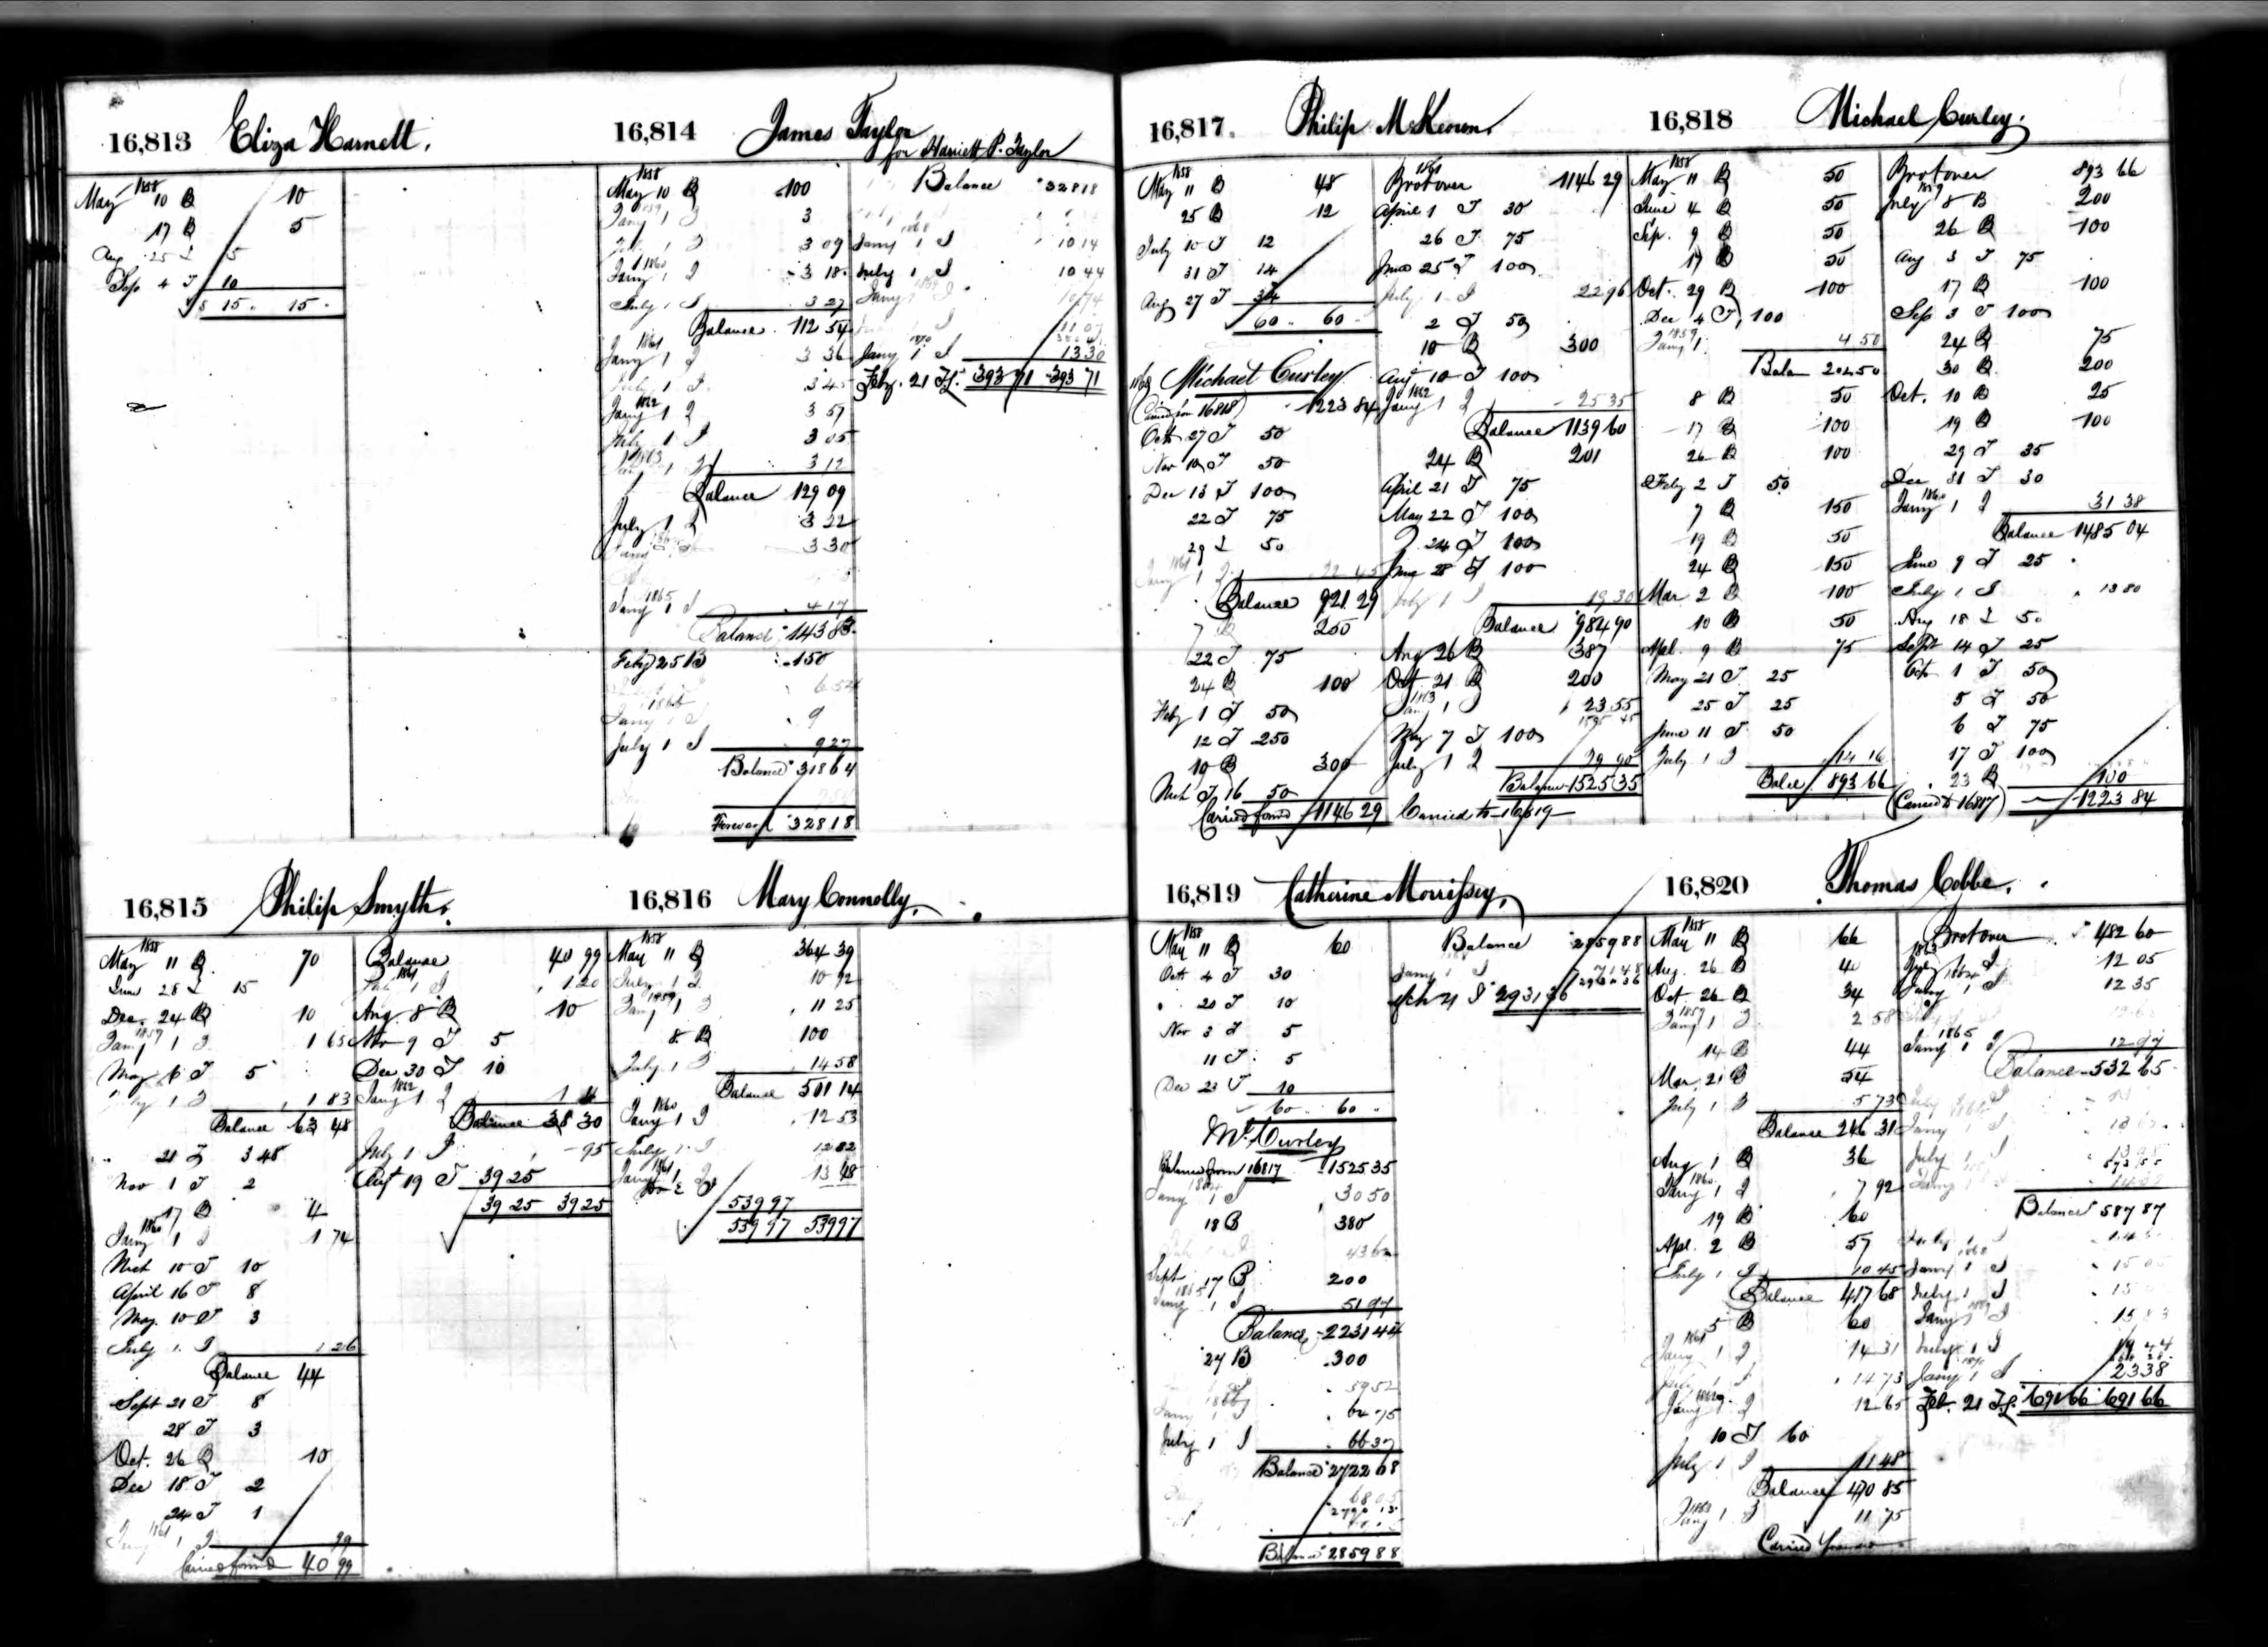 16,813 Eliza Harnett.
1858
May 10 B 10
17 B 5
Aug 25 5
Sep 4 T 10
$ 15 15
16,814 James Taylor
for Harriett P. Taylor
1858
May 10 B 100
1859
Jany 1 I 3
I 3 09
1860
Jany 1 I 3 18
July 1 I 3 27
Balance 112 54
1861
Jany 1 I 3 36
July 1 I 3 45
1862
Jany 1 I 3 57
July 1 I 3 05
1863
Jany 1 I 3 12
Balance 129 09
July 1 I 3 22
3 30
1865
Jany 1 I 4 17
Balance 143 83
Feby 25 B 150
6 54
1866
Jany 1 I 9
July 1 I 9 27
Balance 318 64
Forward 328 18
Balance 328 18
1868
Jany 1 I 10 14
July 1 I 10 44
1869
Jany 1 I 10 74
11 07
1870
Jany 1 I 13 30
Feby. 21 393 71 393 71
16,815 Philip Smyth.
1858
May 11 B 70
June 28 15
Dec. 24 B 10
1859
Jany 1 I 1 65
May 6 T 5
July 1 I 1 83
Balance 63 48
21 3 48
Nov 1 T 2
17 B 4
1860
Jany 1 I 1 74
Mch 10 T 10
April 16 T 8
May 10 T 3
July 1 I 1 26
Balance 44
Sept 21 T 8
28 T 3
Oct. 26 B 10
Dec 18 T 2
24 T 1
1861
Jany 1 I 99
Carried forwd 40 99
Balance 40 99
1861
July 1 I 1 20
Aug. 8 B 10
Nov 9 T 5
Dec 30 T 10
1862
Jany 1 I
Balance 38 30
July 1 I 95
Augt 19 T 39 25
39 25 39 25
16,816 Mary Connolly.
1858
May 11 B 364 39
July 1 I 10 92
1859
Jany 1 I 11 25
8 B 100
July 1 I 14 58
Balance 501 14
1860
Jany 1 I 12 53
July 1 I 12 82
1861
Jany 1 I 13 48
539 97
539 97 539 97
16,817 Philip McKeown.
1858
May 11 B 48
25 B 12
July 10 T 12
31 T 14
Aug 27 T 34
60 60
1860 Michael Curley
(Carried from 16818) 1223 84
Oct 27 T 50
Nov 10 T 50
Dec 13 T 100
22 T 75
29 50
1861
Jany 1 I 22 45
Balance 921 29
7 B 250
22 T 75
24 B 100
Feby 1 T 50
12 T 250
19 B 300
Mch T 16 50
Carried forwd 1146 29
1861
Brot over 1146 29
April 1 T 30
26 T 75
June 25 T 100
July 1 I 22 96
2 T 50
10 B 300
Augt 10 T 100
1862
Jany 1 I 25 35
Balance 1139 60
24 B 201
April 21 T 75
May 22 T 100
24 T 100
June 28 T 100
July 1 I 19 30
Balance 984 90
Aug 26 B 387
Oct. 21 B 200
1863
Jany 1 I 23 55
1595 45
May 7 T 100
July 1 I 29 90
Balance 1525 35
Carried to 16819
16,818 Michael Curley.
1858
May 11 B 50
June 4 B 50
Sep. 9 B 50
17 B 50
Oct. 29 B 100
Dec 4 T 100
1859
Jany 1 4 50
Balan 204 50
8 B 50
17 B 100
26 B 100
Feby 2 T 50
7 B 150
19 B 50
24 B 150
Mar 2 B 100
10 B 50
Apl. 9 B 75
May 21 T 25
25 T 25
June 11 T 50
July 1 I 14 16
Balce 893 66
Brot over 893 66
1859
July 8 B 200
26 B 100
Aug 3 T 75
17 B 100
Sep 3 T 100
24 B 75
30 B 200
Oct. 10 B 25
19 B 100
29 T 35
Dec 31 T 30
1860
Jany 1 I 31 38
Balance 1485 04
June 9 T 25
July 1 I 13 80
Aug 18 50
Sept 14 T 25
Oct 1 T 50
5 T 50
6 T 75
17 T 100
23 B 100
(Carried to 16817) 1223 84
16,819 Catherine Morrissey.
1858
May 11 B 60
Oct 4 T 30
20 T 10
Nov 3 T 5
11 T 5
Dec 23 T 10
60 60
Ml. Curley
Balance from 16817 1525 35
1864
Jany 1 I 30 50
18 B 380
43 60
Sept 17 B 200
1865
Jany 1 I 51 97
Balance 2231 44
27 B 300
59 52
1866
Jany 1 I 64 75
July 1 I 66 37
Balance 2722 08
68 05
Balance 2859 88
Balance 2859 88
Jany 1 I 71 48
Mch 21 2931 36
16,820 Thomas Cobbe.
1858
May 11 B 66
Aug. 26 B 40
Oct. 26 B 34
1859
Jany 1 I 2 58
14 B 44
Mar. 21 B 54
July 1 I 5 73
Balance 246 31
Aug 1 B 36
1860
Jany 1 I 7 92
19 B 60
Apl. 2 B 57
July 1 I 10 45
Balance 417 68
5 B 60
1861
Jany 1 I 14 31
July 1 I 14 73
1862
Jany 1 I 12 65
10 T 60
July 1 I 11 48
Balance 470 85
1863
Jany 1 I 11 75
Carried forward
Brot over 482 60
1863
July 1 I 12 05
1864
Jany 1 I 12 35
1865
Jany 1 I 12 97
Balance 532 65
July
Jany 1 I
July 1 I 13 98
Jany
Balance 587 87
July 1 I
1868
Jany 1 I 15 05
July 1 I
1869
Jany 1 I 15 83
July 1 I 19 44
1870
Jany 1 I 23 38
Feb. 21 691 66 691 66